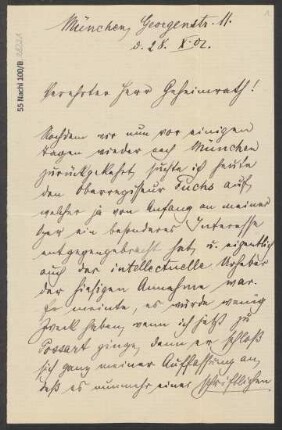 München, Georgenstr. 11.
d. 28. X. 02.
55 Nachl 100/B
Verehrter Herr Geheimrath!
Nachdem wir nun vor einigen
Tagen wieder nach München
zurückgekehrt, suchte ich heute
den Oberregisseur Fuchs auf,
welcher ja von Anfang an meiner
Oper ein besonderes Interesse
entgegengebracht hat, u. eigentlich
auch der intellectuelle Urheber
der hiesigen Annahme war.
Er meinte, es würde wenig
Zweck haben, wenn ich jetzt zu
Possart ginge, denn er schloß
sich ganz meiner Auffassung an,
daß es nunmehr einer schriftlichen